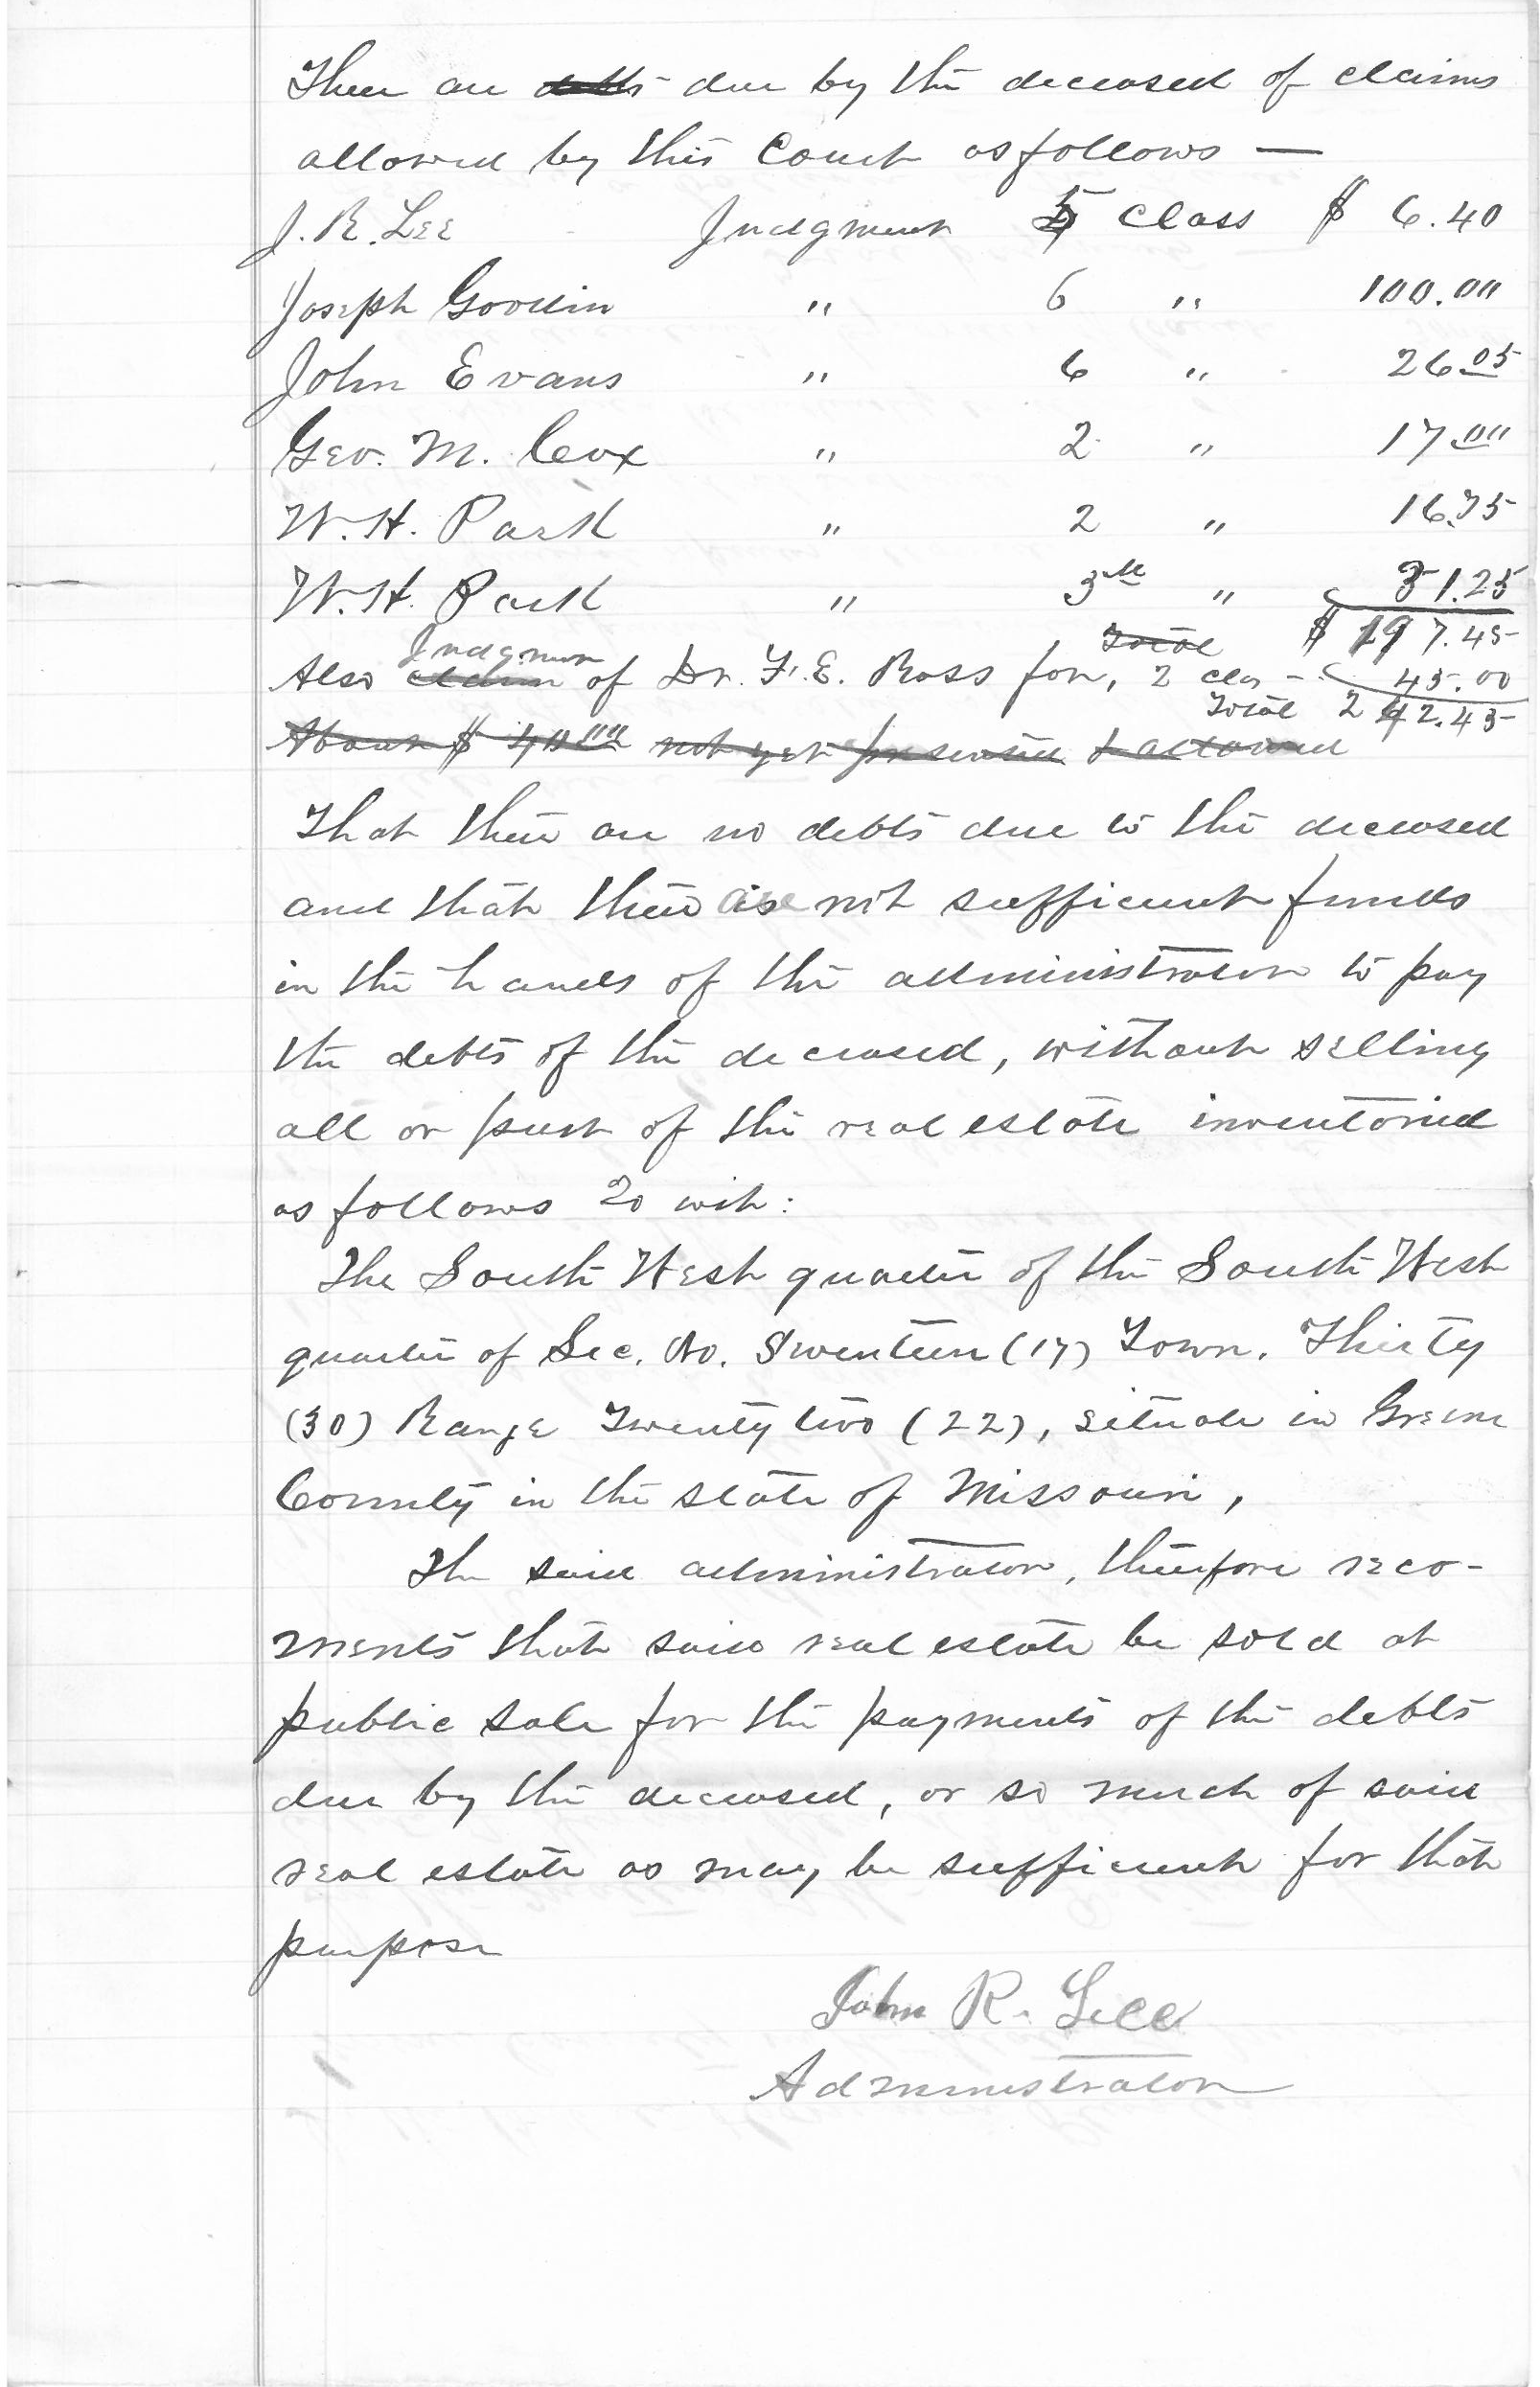 There are debts due by the deceased of claims
allowed by this Court as follows —
J. R. Lee Judgment 5 Class $ 6.40
Joseph Goodin " 6 " 100.00
John Evans " 6 " 26 05
Geo. M. Cox " 2 " 17 00
W. H. Park " 2 " 16.75
W. H. Park " 3 " 31.25
Total $ 197.45
Judgment
Also claim of Dr. F. E. Ross for, 2 clas - 45.00
Total 242.45
About $ 40 00 not yet presented & allowed
That there are no debts due to the deceased
and that there are not sufficient funds
in the hands of the administrator to pay
the debts of the deceased, without selling
all or part of the real estate inventoried
as follows To wit:
The South West quarter of the South West
quarter of Sec. No. Seventeen (17) Town. Thirty
(30) Range Twenty two (22), situate in Greene
County in the state of Missouri,
The said administrator, therefore reco-
ments that said real estate be sold at
public sale for the payments of the debts
due by the deceased, or so much of said
real estate as may be sufficient for that
purpose
John R. Lee
Administrator